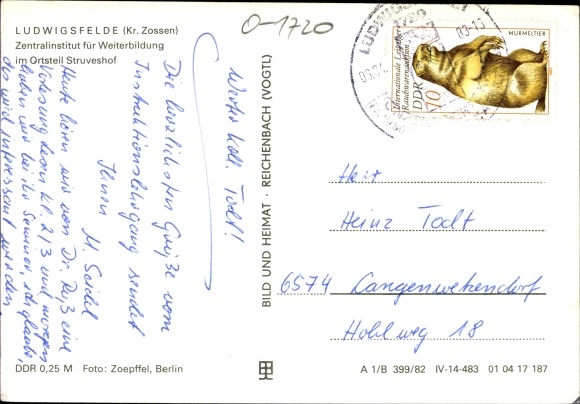 LUDWIGSFELDE (Kr. Zossen)
Zentralinstitut für Weiterbildung
im Ortsteil Struveshof
O-1720
Werter Koll. Todt!
Die herzlichsten Grüße vom
Instruktionslehrgang sendet
Ihnen
M. Seidel
Heute hören wir von Dr. Ruß eine
Vorlesung übern KP 2/3 und morgen
haben wir bei ihr Seminar, ich glaube,
das wird interessant werden.
DDR 0,25 M Foto: Zoepffel, Berlin
BILD UND HEIMAT · REICHENBACH (VOGTL)
LUDWIGSFELDE
1720
MURMELTIER
Internationale Leipziger
Rauchwarenauktion
DDR
10
Herr
Heinz Todt
6574 Langenwetzendorf
Hohlweg 18
A 1/B 399/82 IV-14-483 01 04 17 187